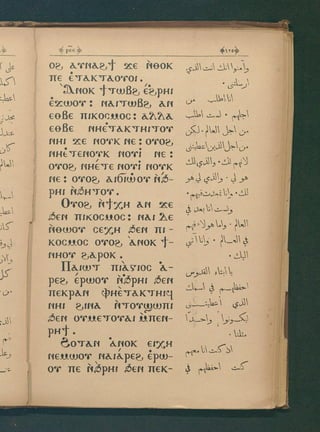 ١٢٥
ⲟϩ ⲁⲩⲛⲁϩϯ ϫⲉ ⲛ̀ⲑⲟⲕ
ⲡⲉ ⲉ̀ⲧⲁⲕⲧⲁⲟⲩⲟⲓ.
Ⲁⲛⲟⲕ ϯⲧⲱⲃϩ ⲉ̀ϩⲣⲏⲓ
ⲉϫⲱⲟⲩ: ⲛⲁⲓⲧⲱⲃϩ ⲁⲛ
ⲉⲑⲃⲉ ⲡⲓⲕⲟⲥⲙⲟⲥ: ⲁⲗⲗⲁ
ⲉⲑⲃⲉ ⲛⲏⲉ̀ⲧⲁⲕⲧⲏⲓⲧⲟⲩ
ⲛⲏⲓ ϫⲉ ⲛⲟⲩⲕ ⲛⲉ: ⲟⲩⲟϩ
ⲛⲏⲉ̀ⲧⲉⲛⲟⲩⲓ ⲛⲟⲩⲓ̀ ⲛⲉ:
ⲟⲩⲟϩ ⲛⲏⲉ̀ⲧⲉ ⲛⲟⲩⲓ̀ ⲛⲟⲩⲕ
ⲛⲉ: ⲟⲩⲟϩ ⲁⲓϭⲓⲱ̀ⲟⲩ ⲛ̀ϧ̀-
ⲣⲏⲓ ⲛ̀ϧⲏⲧⲟⲩ.
Ⲟⲩⲟϩ ⲛ̀ϯⲭⲏ ⲁⲛ ϫⲉ
ϧⲉⲛ ⲡⲓⲕⲟⲥⲙⲟⲥ: ⲛⲁⲓ ⲇⲉ
ⲛ̀ⲑⲱⲟⲩ ⲥⲉⲭⲏ ϧⲉⲛ ⲡⲓ-
ⲕⲟⲥⲙⲟⲥ ⲟⲩⲟϩ ⲁ̀ⲛⲟⲕ ϯ-
ⲛⲏⲟⲩ ϩⲁⲣⲟⲕ.
Ⲡⲁⲓⲱⲧ ⲡⲓⲁ̀ⲅⲓⲟⲥ ⲁ̀-
ⲣⲉϩ ⲉⲣⲱⲟⲩ ⲛ̀ϧ̀ⲣⲏⲓ ϧⲉⲛ
ⲡⲉⲕⲣⲁⲛ ⲫⲏⲉ̀ⲧⲁⲕⲧⲏⲓϥ
ⲛⲏⲓ ϩⲓⲛⲁ ⲛ̀ⲧⲟⲩϣⲱⲡⲓ
ϧⲉⲛ ⲟⲩⲙⲉⲧⲟⲩⲁⲓ ⲙ̀ⲡⲉⲛ-
ⲣⲏϯ.
Ϩⲟⲧⲁⲛ ⲁ̀ⲛⲟⲕ ⲉⲓⲭⲏ
ⲛⲉⲙⲱⲟⲩ ⲛⲁⲓⲁ̀ⲣⲉϩ ⲉ̀ⲣⲱ-
ⲟⲩ ⲡⲉ ⲛ̀ϧ̀ⲣⲏⲓ ϧⲉⲛ ⲡⲉⲕ-
وآمنوا انك انت الذي
ارسلتني.
انا اطلب من
اجلهم. لست اطلب
من اجل العالم. لكن
من اجل الذين اعطيتني
لانهم لك. والذي لك
هو لي. والذي لي هو
لك. وانا تمجدت فيهم.
ولست انا بعد في
العالم. واما هؤلاء فهم
في العالم. وانا آتي
اليك.
يا ابتاه القدوس
احفظهم في اسمك
الذي اعطيتني
ليكونوا واحدا
مثلنا.
اذ كنت انا معهم
كنت احفظهم في